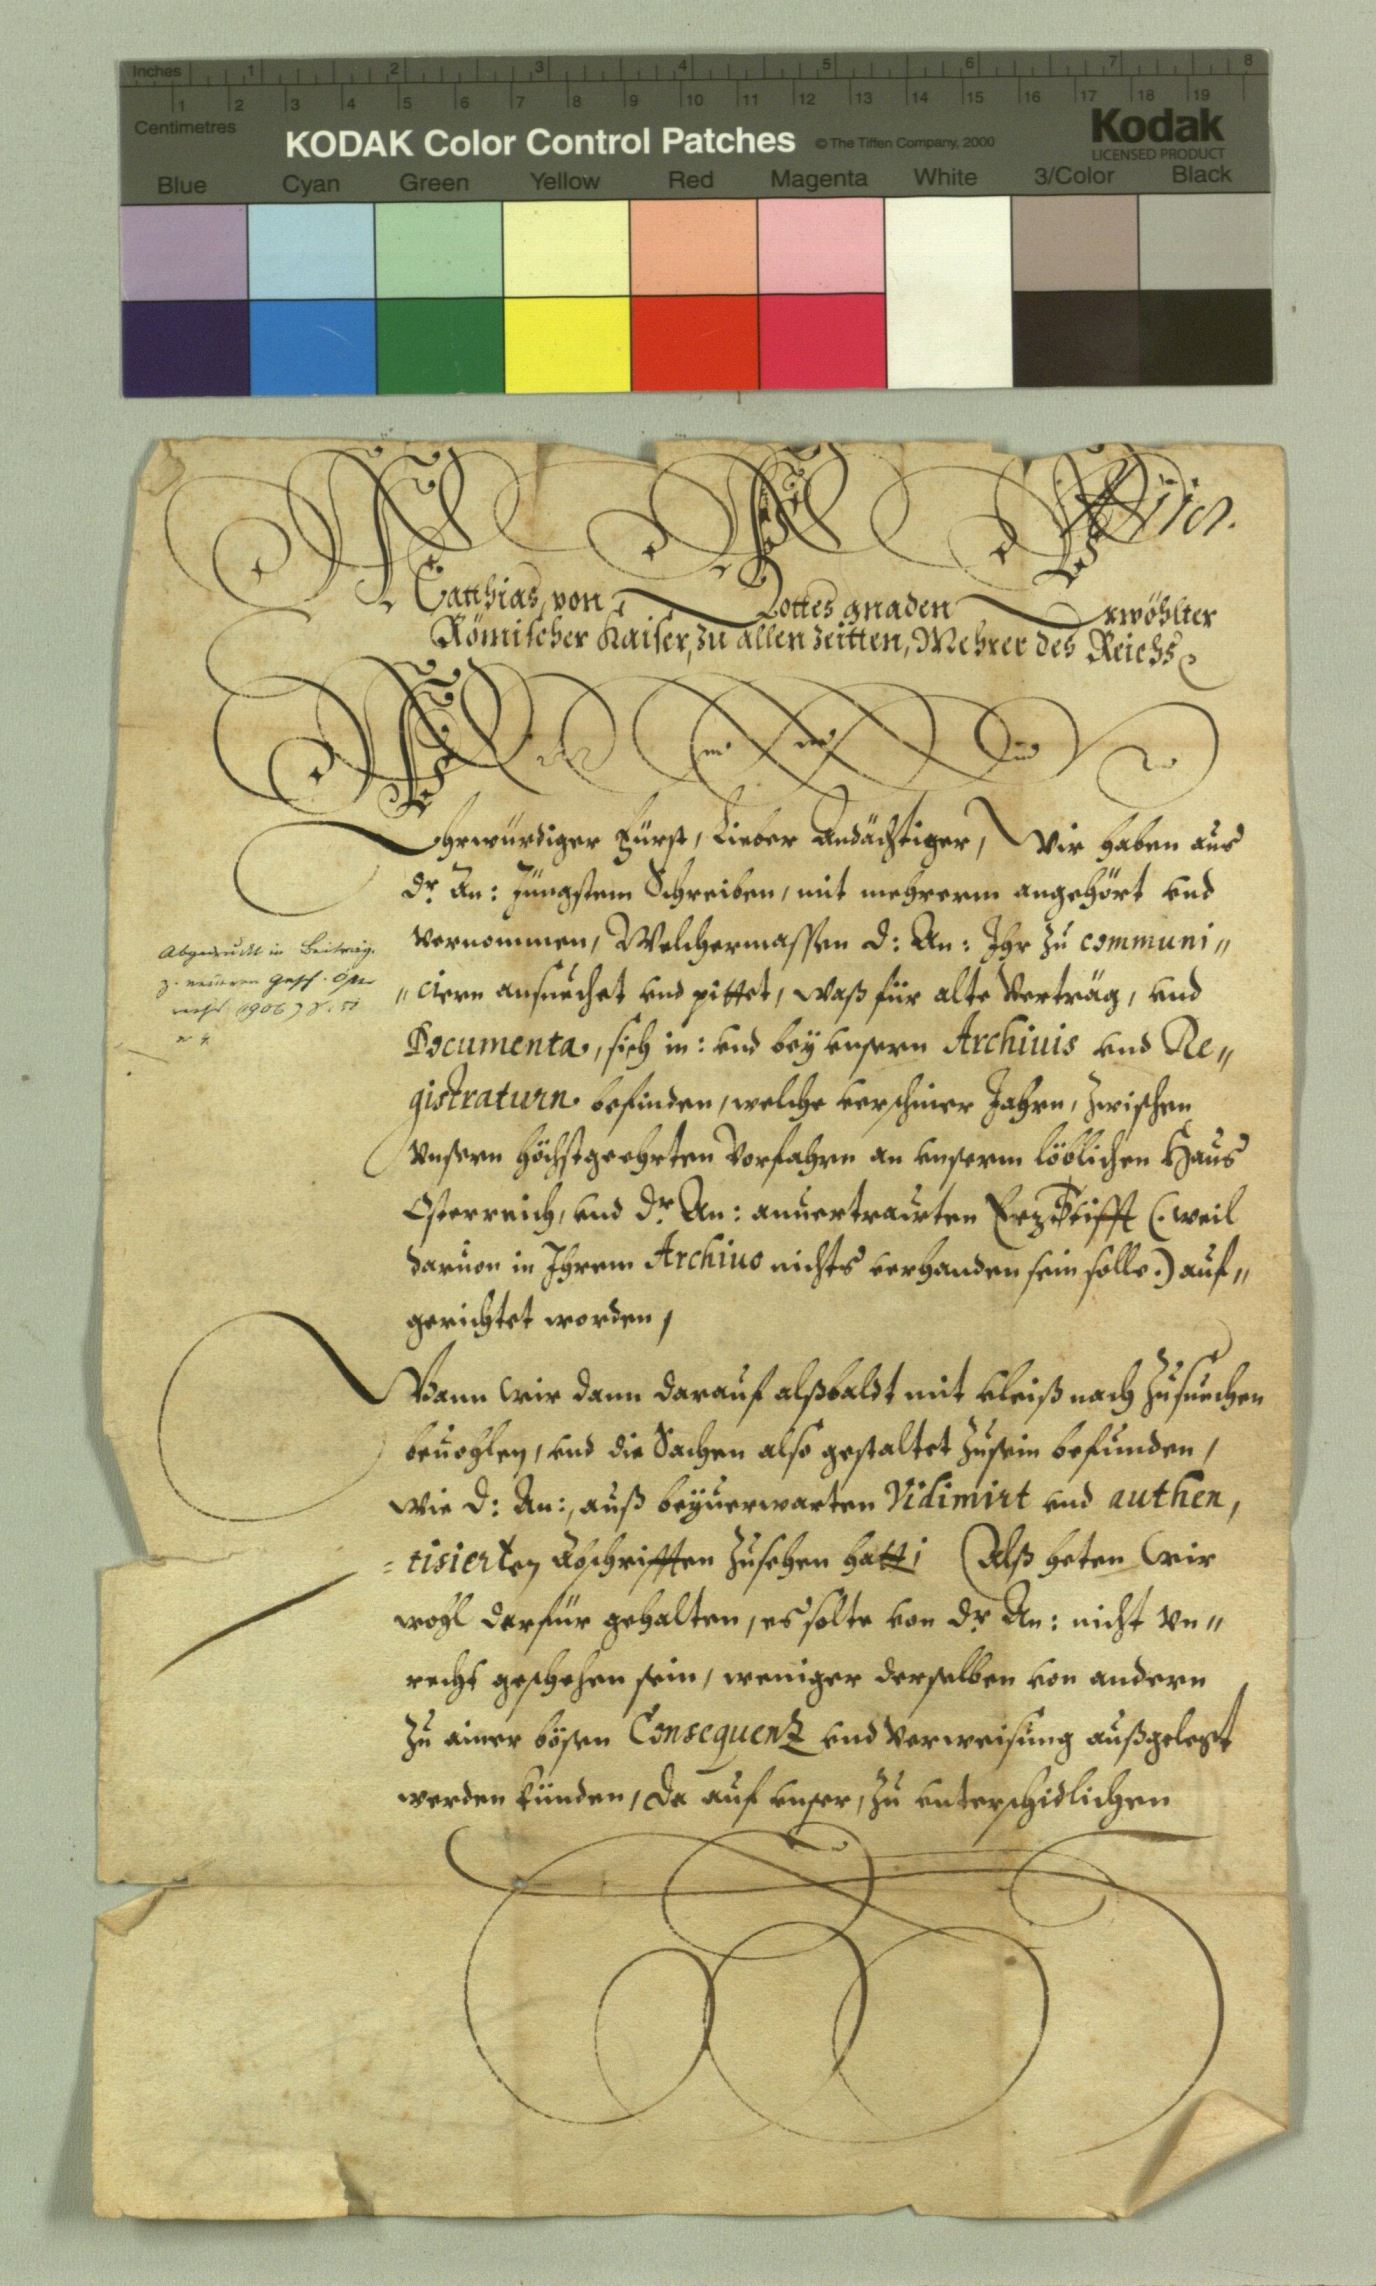 Inches 1 2 3 4 5 6 7 8
1 2 3 4 5 6 7 8 9 10 11 12 13 14 15 16 17 18 19
Centimetres
KODAK Color Control Patches © The Tiffen Company, 2000 Kodak
LICENSED PRODUCT
Blue Cyan Green Yellow Red Magenta White 3/Color Black
Matthias, von Gottes gnaden Erwöhlter
Römischer Kaiser, zu allen zeitten, Mehrer des Reichs
Ehrwürdiger Fürst, Lieber Andächtiger, Wir haben aus
Dr. An: Jüngstem Schreiben, mit mehrerm angehört vnd
vernommen, Welchermassen D: An: Ihr zu communi„
„ciern ansuechet vnd pittet, waß für alte Verträg, vnd
Documenta, sich in: vnd bey vnsern Archiuis vnd Re„
gistraturn befinden, welche verschiner Jahrn, zwischen
vnsern höchstgeehrten Vorfahrn an vnserm löblichen Haus
Osterreich, vnd Dr. An: anuertrauten ErzStifft (: weil
daruon in Ihrem Archiuo nichts verhanden sein solle.) auf„
gerichtet worden,
Wann Wir dann darauf alßbaldt mit vleiß nach zusuechen
beuohlen, vnd die Sachen also gestaltet zusein befunden,
wie D: An:, auß beÿuerwarten Vidimirt vnd authen,
=tisierten Abschrifften zusehen hatt; Alß heten Wir
wohl darfür gehalten, es solte von Dr. An: nicht vn„
recht geschehen sein, weniger derselben von andern
zu ainer bösen Consequentz vnd Verweisung außgelegt
werden künden, da auf vnser, zu vnterschidlichen
Abgedruckt in Beiträg.
z. neueren Gesch. Öster
reichs (1906)